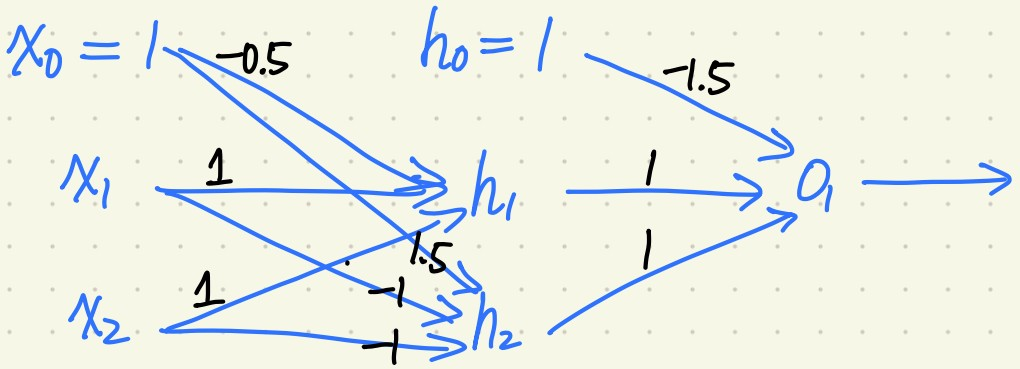 x₀ = 1 -0.5 h₀ = 1 -1.5
x₁ 1 h₁ 1 o₁
1.5 1
x₂ 1 -1 h₂
-1